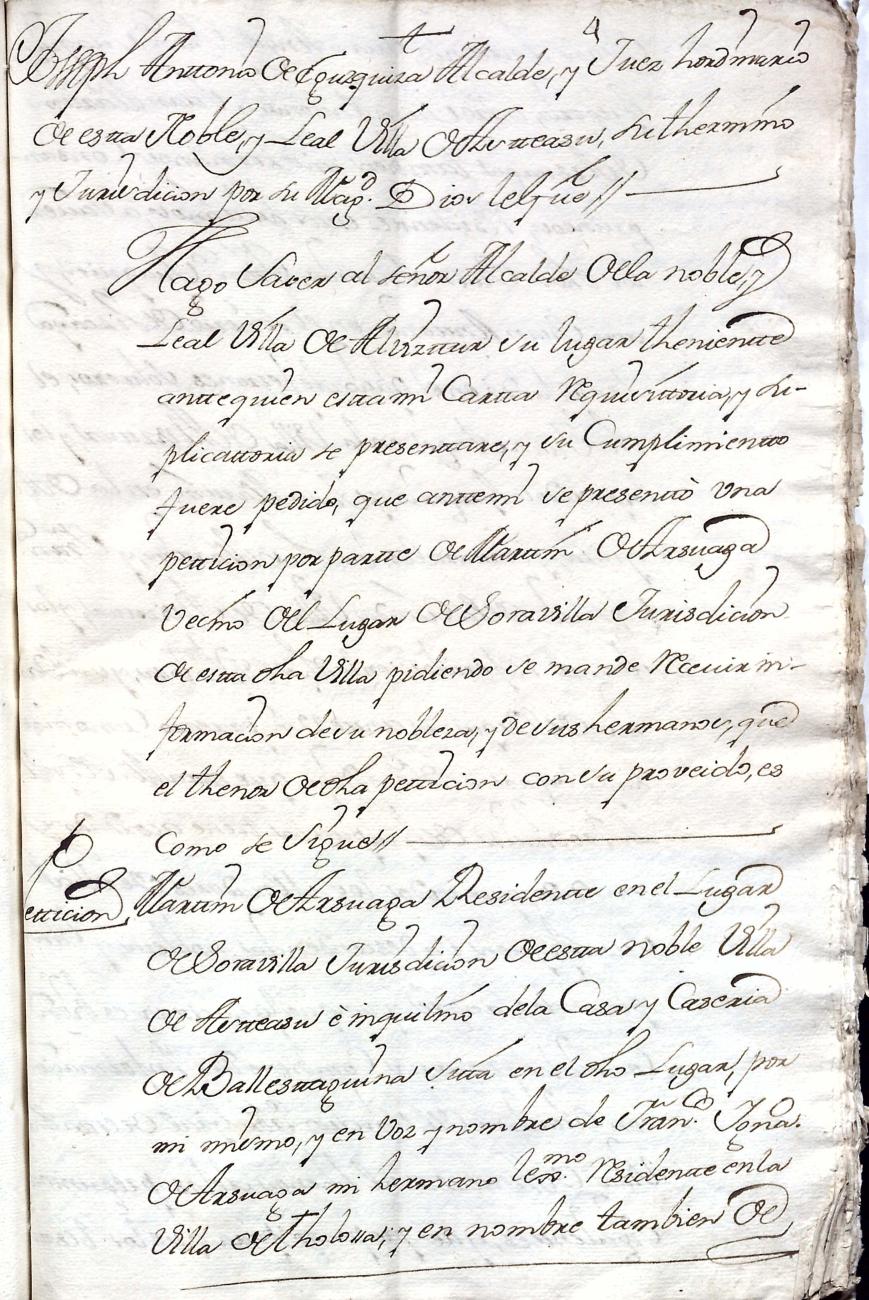 4
Joseph Anttonio de Eguzquiza Alcalde, y Juez hordinario
de estta Noble, y Leal Villa de Astteasu, su thermino
y Jurisdicion por su Magd. Dios le gue //
Hago saver al señor Alcalde de la noble, y
Leal Villa de Alvizttur su lugar thenientte
antte quien estta mi Cartta Requisittoria, y su-
plicattoria se presenttare, y su Cumplimientto
fuere pedido, que antte mi se presenttò una
petticion por partte de Marttin de Arsuaga
vecino del Lugar de Soravilla Jurisdicion
de estta dha Villa pidiendo se mande Recivir in-
formacion de su nobleza, y de sus hermanos, que
el thenor de dha petticion con su proveido, es
Como se sigue //
Petticion
Marttin de Arsuaga Residentte en el Lugar
de Soravilla Jurisdicion de estta noble Villa
de Astteasu è inquilino de la Casa y Caseria
de Ballesttaguina sitta en el dho Lugar, por
mi mismo, y en voz y nombre de Franco. Igna.
de Arsuaga mi hermano lexmo. Residentte en la
Villa de Tholossa; y en nombre tambien de